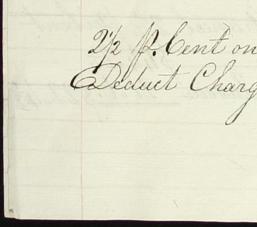 2 1/2 p. Cent on
Deduct Charg